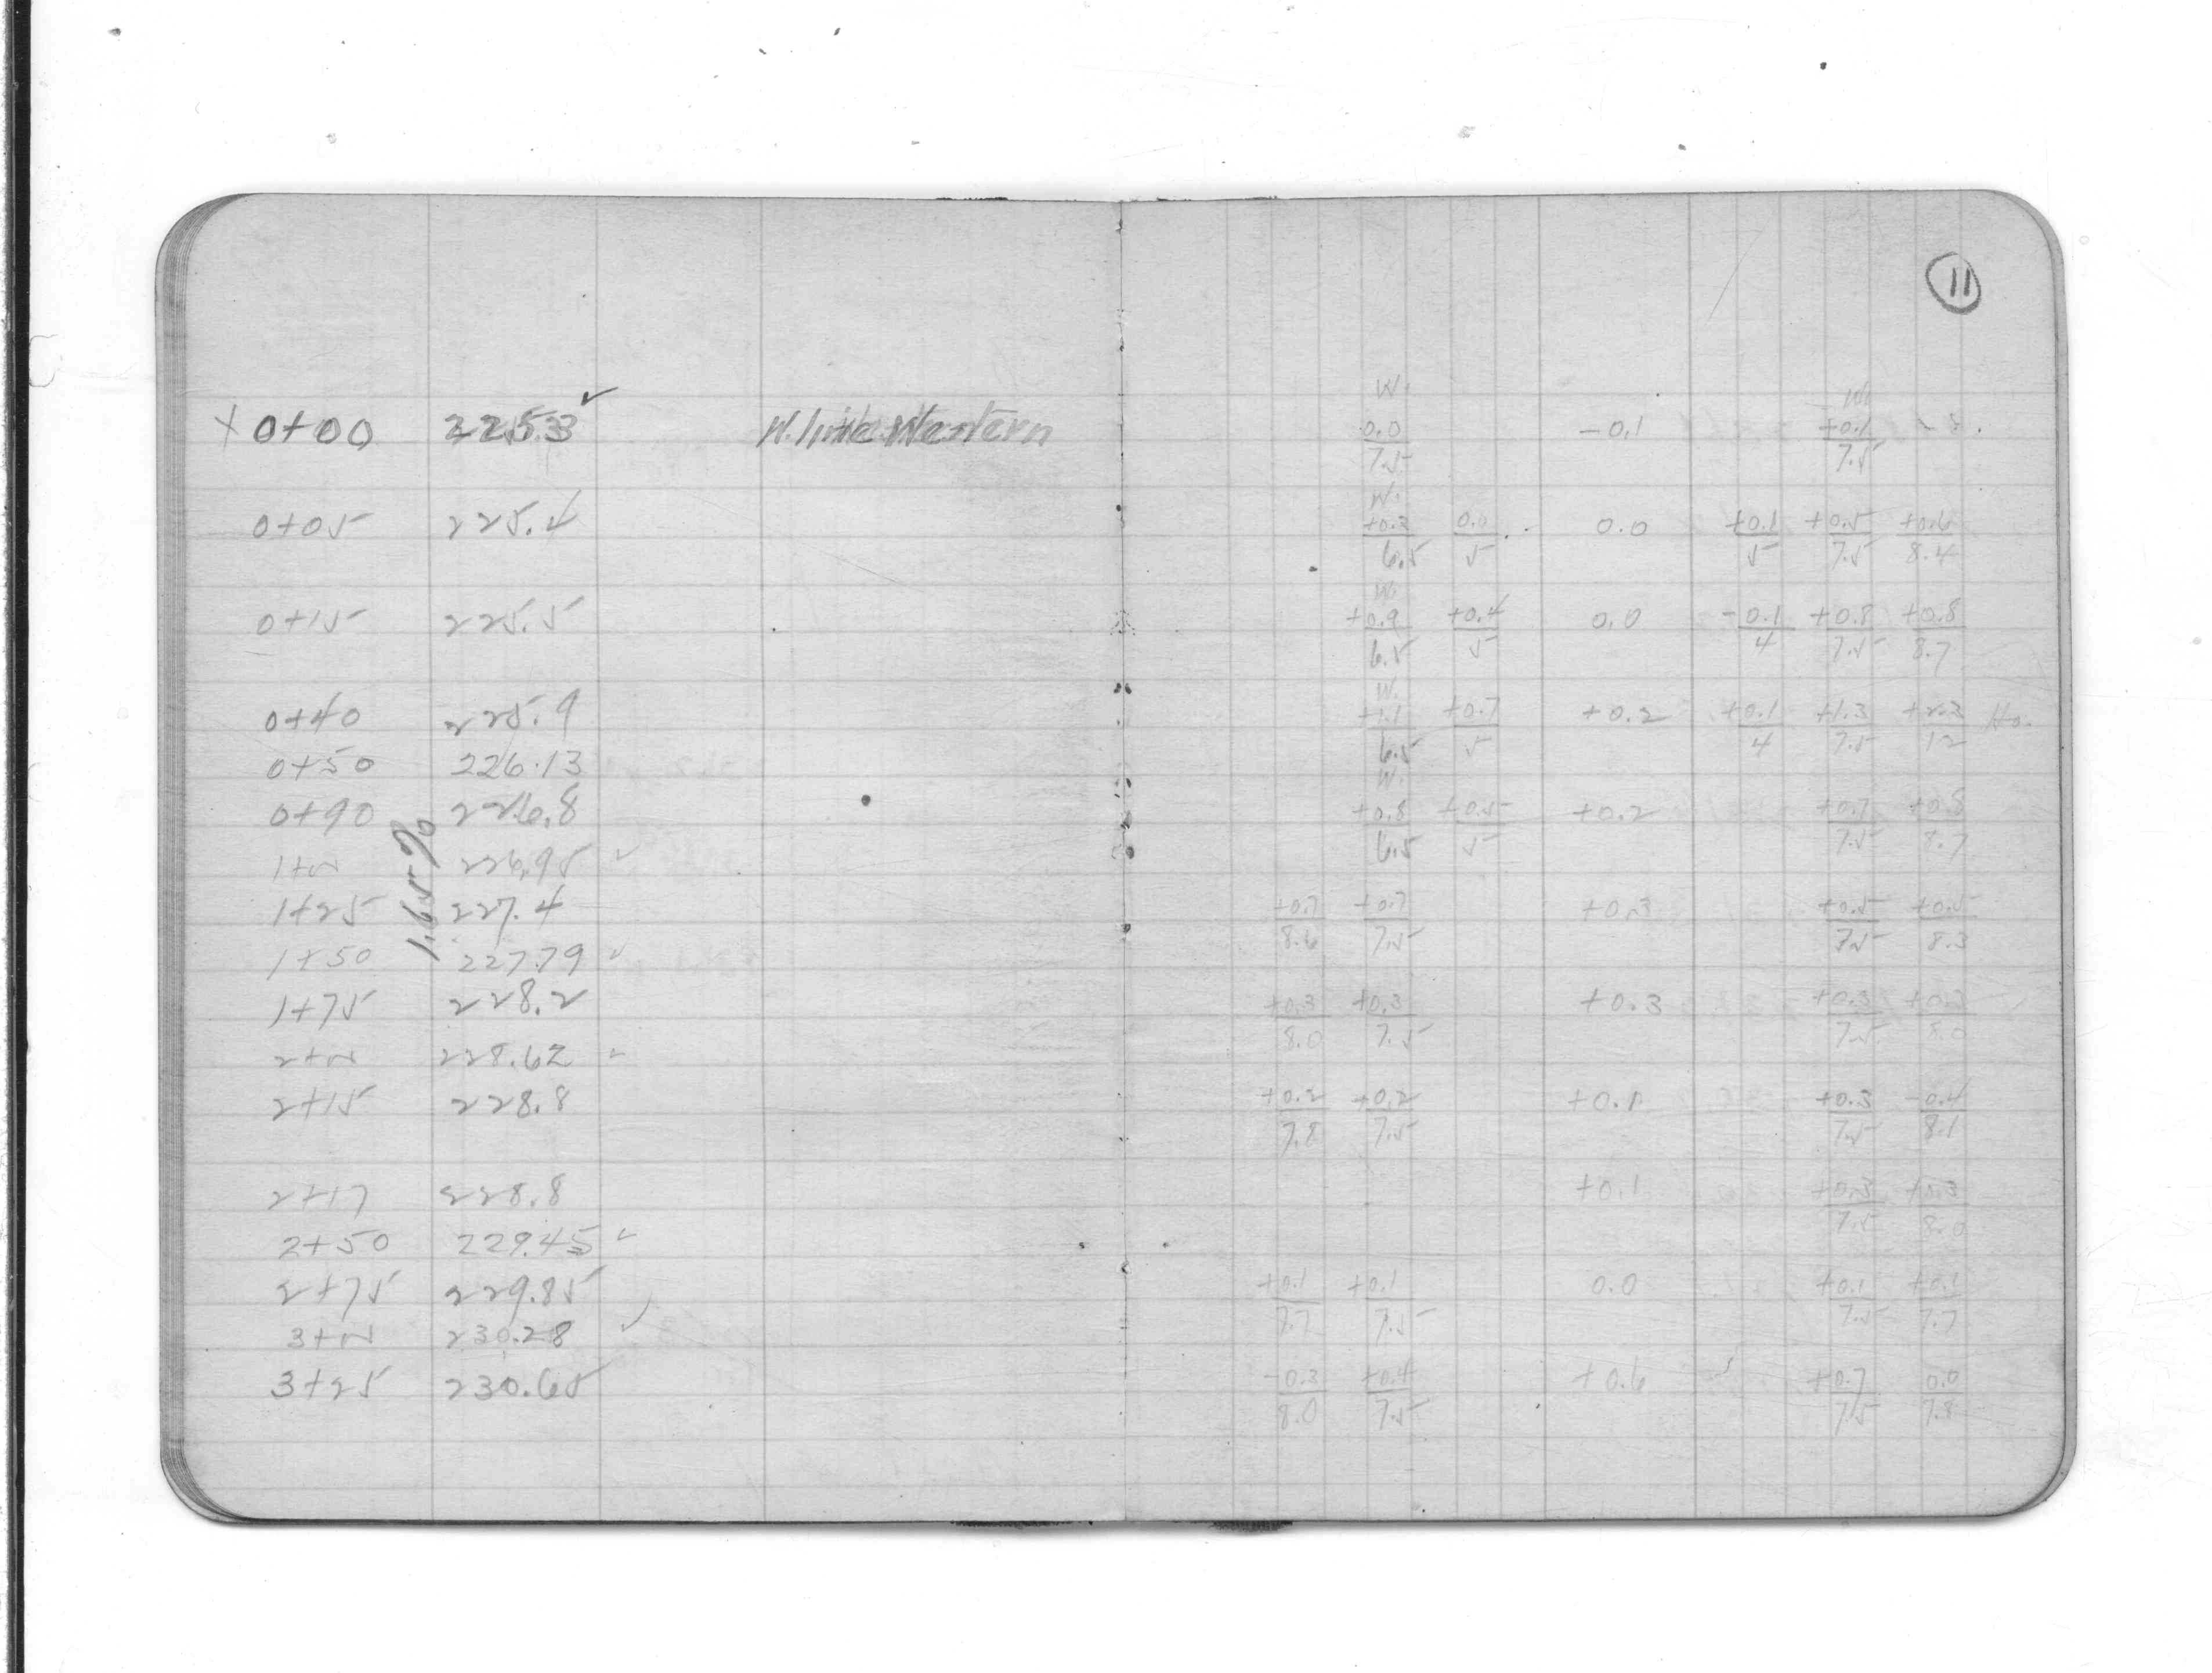 11
W. W.
x 0+00 225.3 ✓ W. line Western 0.0/7.5 -0.1 +0.1/7.5
W.
0+05 225.4 +0.2/6.5 0.0/5 0.0 +0.1/5 +0.5/7.5 +0.6/8.4
W.
0+15 225.5 +0.9/6.5 +0.4/5 0.0 -0.1/4 +0.8/7.5 +0.8/8.7
W.
0+40 225.9 +1.1/6.5 +0.7/5 +0.2 +0.1/4 +1.3/7.5 +2.3/12 Ho.
0+50 226.13
W.
0+90 226.8 +0.8/6.5 +0.5/5 +0.2 +0.7/7.5 +0.8/8.7
1.65%
1+00 226.95 ✓
1+25 227.4 +0.7/8.6 +0.7/7.5 +0.3 +0.5/7.5 +0.5/8.3
1+50 227.79 ✓
1+75 228.2 +0.3/8.0 +0.3/7.5 +0.3 +0.3/7.5 +0.3/8.0
2+00 228.62 ✓
2+15 228.8 +0.2/7.8 +0.2/7.5 +0.1 +0.3/7.5 -0.4/8.1
2+17 228.8 +0.1 +0.3/7.5 +0.3/8.0
2+50 229.45 ✓
2+75 229.85 +0.1/7.7 +0.1/7.5 0.0 +0.1/7.5 +0.1/7.7
3+00 230.28 ✓
3+25 230.65 -0.3/8.0 +0.4/7.5 +0.6 +0.7/7.5 0.0/7.8